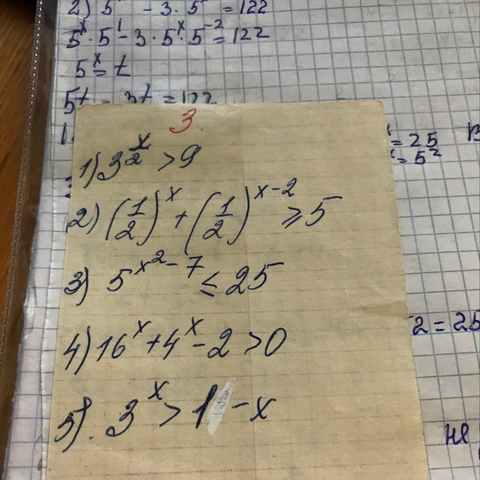 2) 5 - 3 · 5 = 122
5^x · 5^1 - 3 · 5^x 5^-2 = 122
5^x = t
5t - 3t = 122
= 25
= 5^2
3
1) 3^(x/2) > 9
2) (1/2)^x + (1/2)^(x-2) ≥ 5
3) 5^(x^2-7) ≤ 25
4) 16^x + 4^x - 2 > 0
5) 3^x > 1 - x
2 = 25
не